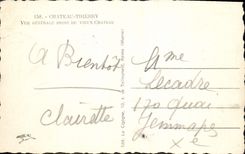 158. - CHATEAU-THIERRY
VUE GÉNÉRALE PRISE DU VIEUX CHATEAU
A Bientôt
Clairette
Mme
Lecadre
170 quai
Jemmapes
Xe